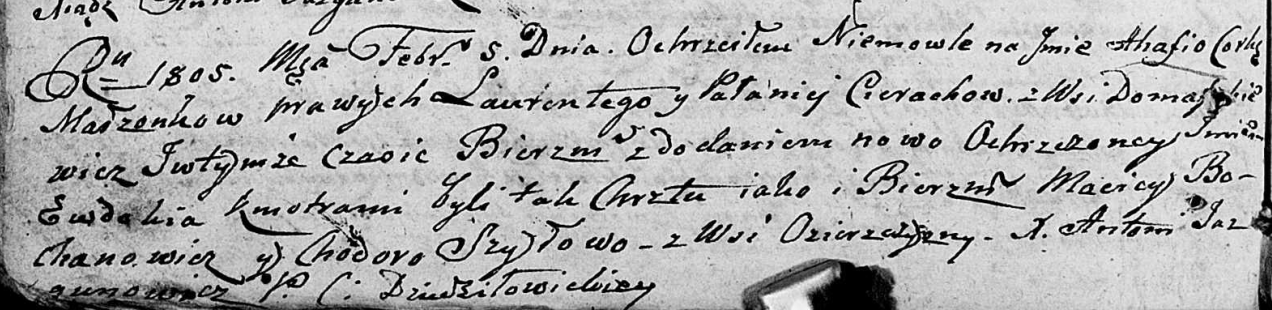 Xiądz Antoni
Ru 1805. Msa Febr. 5. Dnia. Ochrzciłem Niemowle na Jmie Ahafio Corkę
Małżonkow prawych Laurentego y Pałanij Cierachow. z Wsi Domaszkie
wicz Jwtymże Czasie Bierzm z dodaniem nowo Ochrzczoney Jmien
Ewdokia Kmotrami byli tak Chrztu iako i Bierzm Maciey Bo-
chanowicz y Chodora Szyłowo - z Wsi Ozierzczyzny - X. Antoni Jaz
gunowicz P. C. Dziedziłowickiey